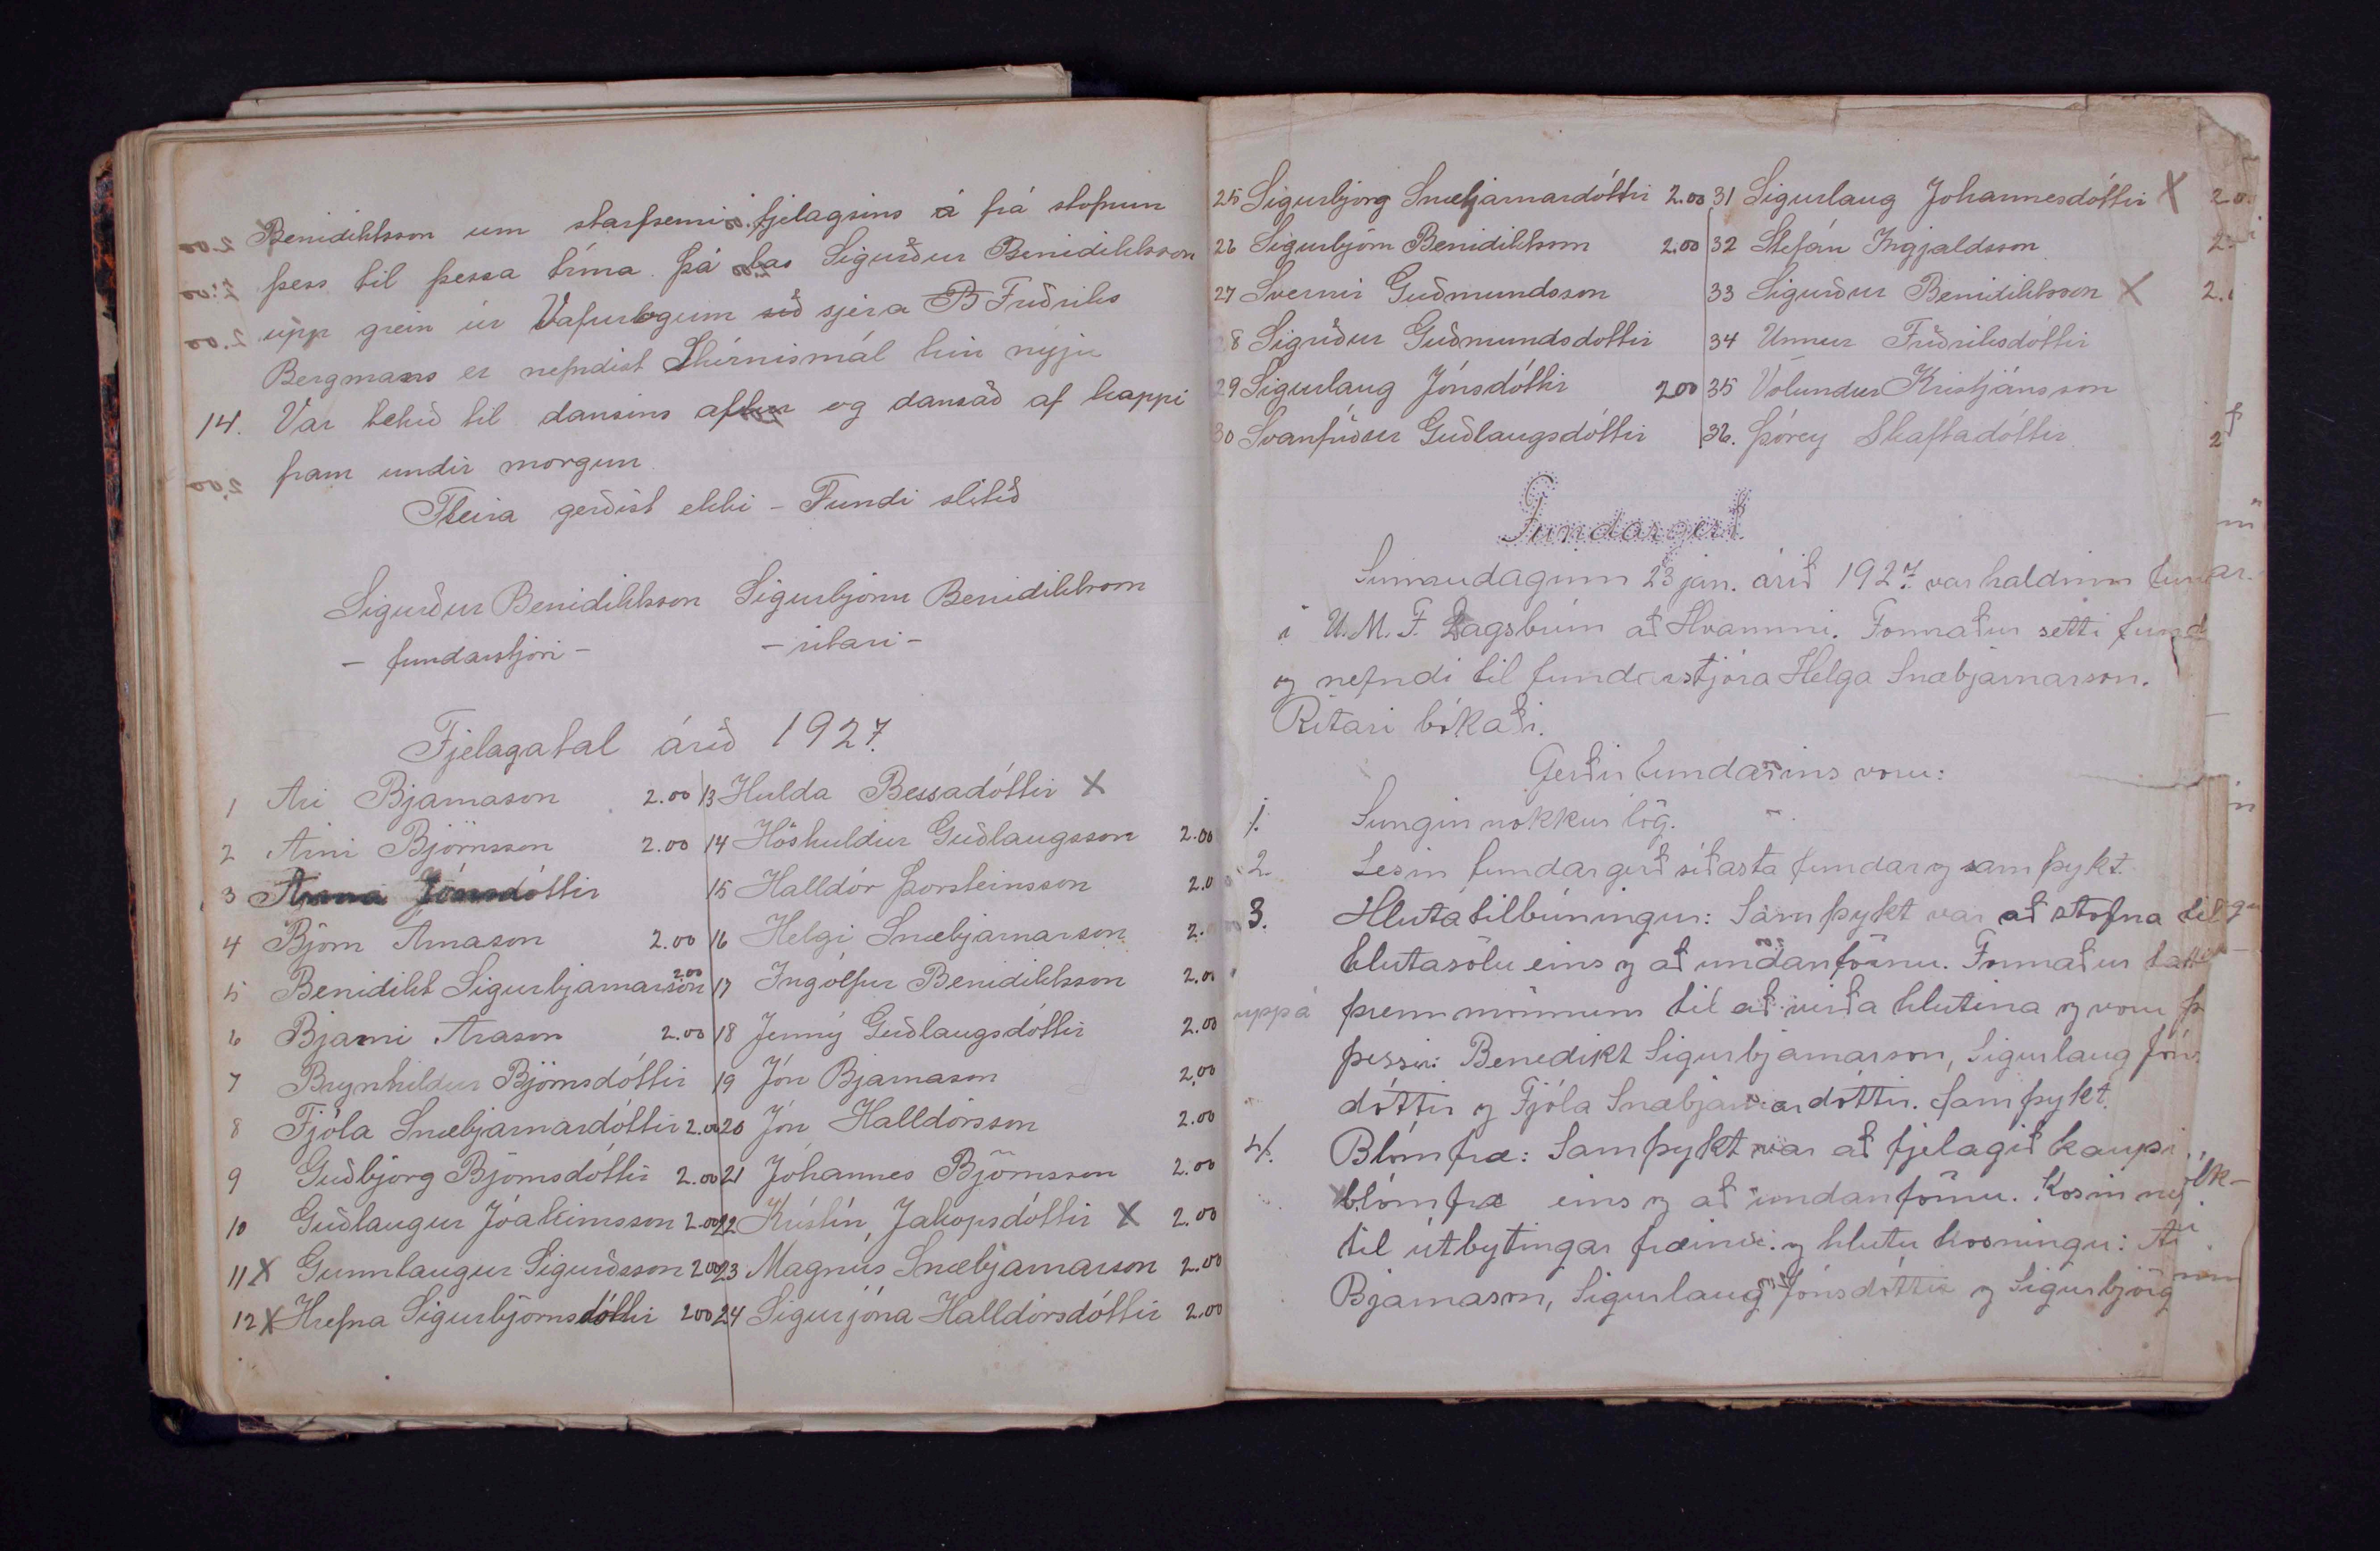 Benidiktsson um starfsemi fjelagsins á frá stofnun
þess til þessa tíma. Þá las Sigurður Benidiktsson
upp grein úr Vafurlogum sjéra Friðriks
Bergmans er nefndist Skírnismál hin nýju
14. Var tekið til dansins aftur og dansað af kappi
fram undir morgun
Fleira gerðist ekki - Fundi slitið
Sigurður Benidiktsson Sigurbjörn Benidiktsson
- fundarstjóri - - ritari -
Fjelagatal árið 1927.
1 Ari Bjarnason 2.00 13 Hulda Bessadóttir X
2 Árni Björnsson 2.00 14 Höskuldur Guðlaugsson 2.00
3 Anna Jónsdóttir 15 Halldór Þorsteinsson 2.0
4 Björn Arnason 2.00 16 Helgi Snæbjarnarson 2.
5 Benidikt Sigurbjarnarson 2.00 17 Ingólfur Benidiktsson 2.00
6 Bjarni Arason 2.00 18 Jenný Guðlaugsdóttir 2.00
7 Brynhildur Björnsdóttir 19 Jón Bjarnason 2.00
8 Fjóla Snæbjarnardóttir 2.00 20 Jón Halldórsson 2.00
9 Guðbjörg Björnsdóttir 2.00 21 Jóhannes Björnsson 2.00
10 Guðlaugur Jóakimsson 2.00 22 Kristín Jakopsdóttir X 2.00
11 X Gunnlaugur Sigurðsson 200 23 Magnús Snæbjarnarson 2.00
12 X Hrefna Sigurbjörnsdóttir 200 24 Sigurjóna Halldórsdóttir 2.00
25 Sigurbjörg Snæbjarnardóttir 2.00 31 Sigurlaug Johannesdóttir X 2.0
26 Sigurbjörn Benidiktsson 2.00 32 Stefán Ingjaldsson 2.
27 Sverrir Guðmundsson 33 Sigurður Benidiktsson X 2.
28 Sigríður Guðmundsdottir 34 Unnur Friðriksdóttir
29 Sigurlaug Jónsdóttir 200 35 Völundur Kristjánsson
30 Svanfríður Guðlaugsdóttir 36. Þórey Skaftadóttir 2
Fundargerð
Sunnudaginn 23 jan. árið 1927. var haldinn fun
í U.M.F. Dagsbrún að Hvammi. Formaður setti fund
og nefndi til fundarstjóra Helga Snæbjarnarson.
Ritari bókaði.
Gerðir fundarins voru:
1. Sungin nokkur lög.
2. Lesin fundargerð síðasta fundar og samþykt.
3. Hlutatilbúningur: Samþykt var að stofna til
hlutasölu eins og að undanförnu. Formaður
uppá þrem mönnum til að virða hlutina og voru þ
þessir: Benedikt Sigurbjarnarson, Sigurlaug Jóns
dóttir og Fjóla Snæbjarnardóttir. Samþykt.
4. Blómfræ: Samþykt var að fjelagið kaupi
blómfræ eins og að undanförnu. Kosin
til útbýtingar fræinu og hlutu kosningu: Ari
Bjarnason, Sigurlaug Jónsdóttir og Sigurbjörg